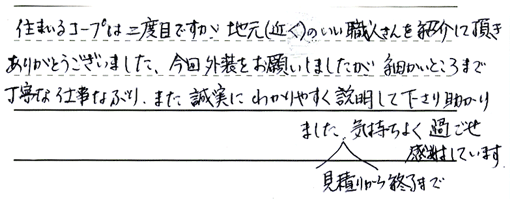 住まいるコープは二度目ですが、地元(近く)のいい職人さんを紹介して頂き
ありがとうございました、今回外装をお願いしましたが 細かいところまで
丁寧な仕事なぶり、また誠実に わかりやすく説明して下さり助かり
ました、気持ちよく過ごせ
感謝しています
見積りから終了まで